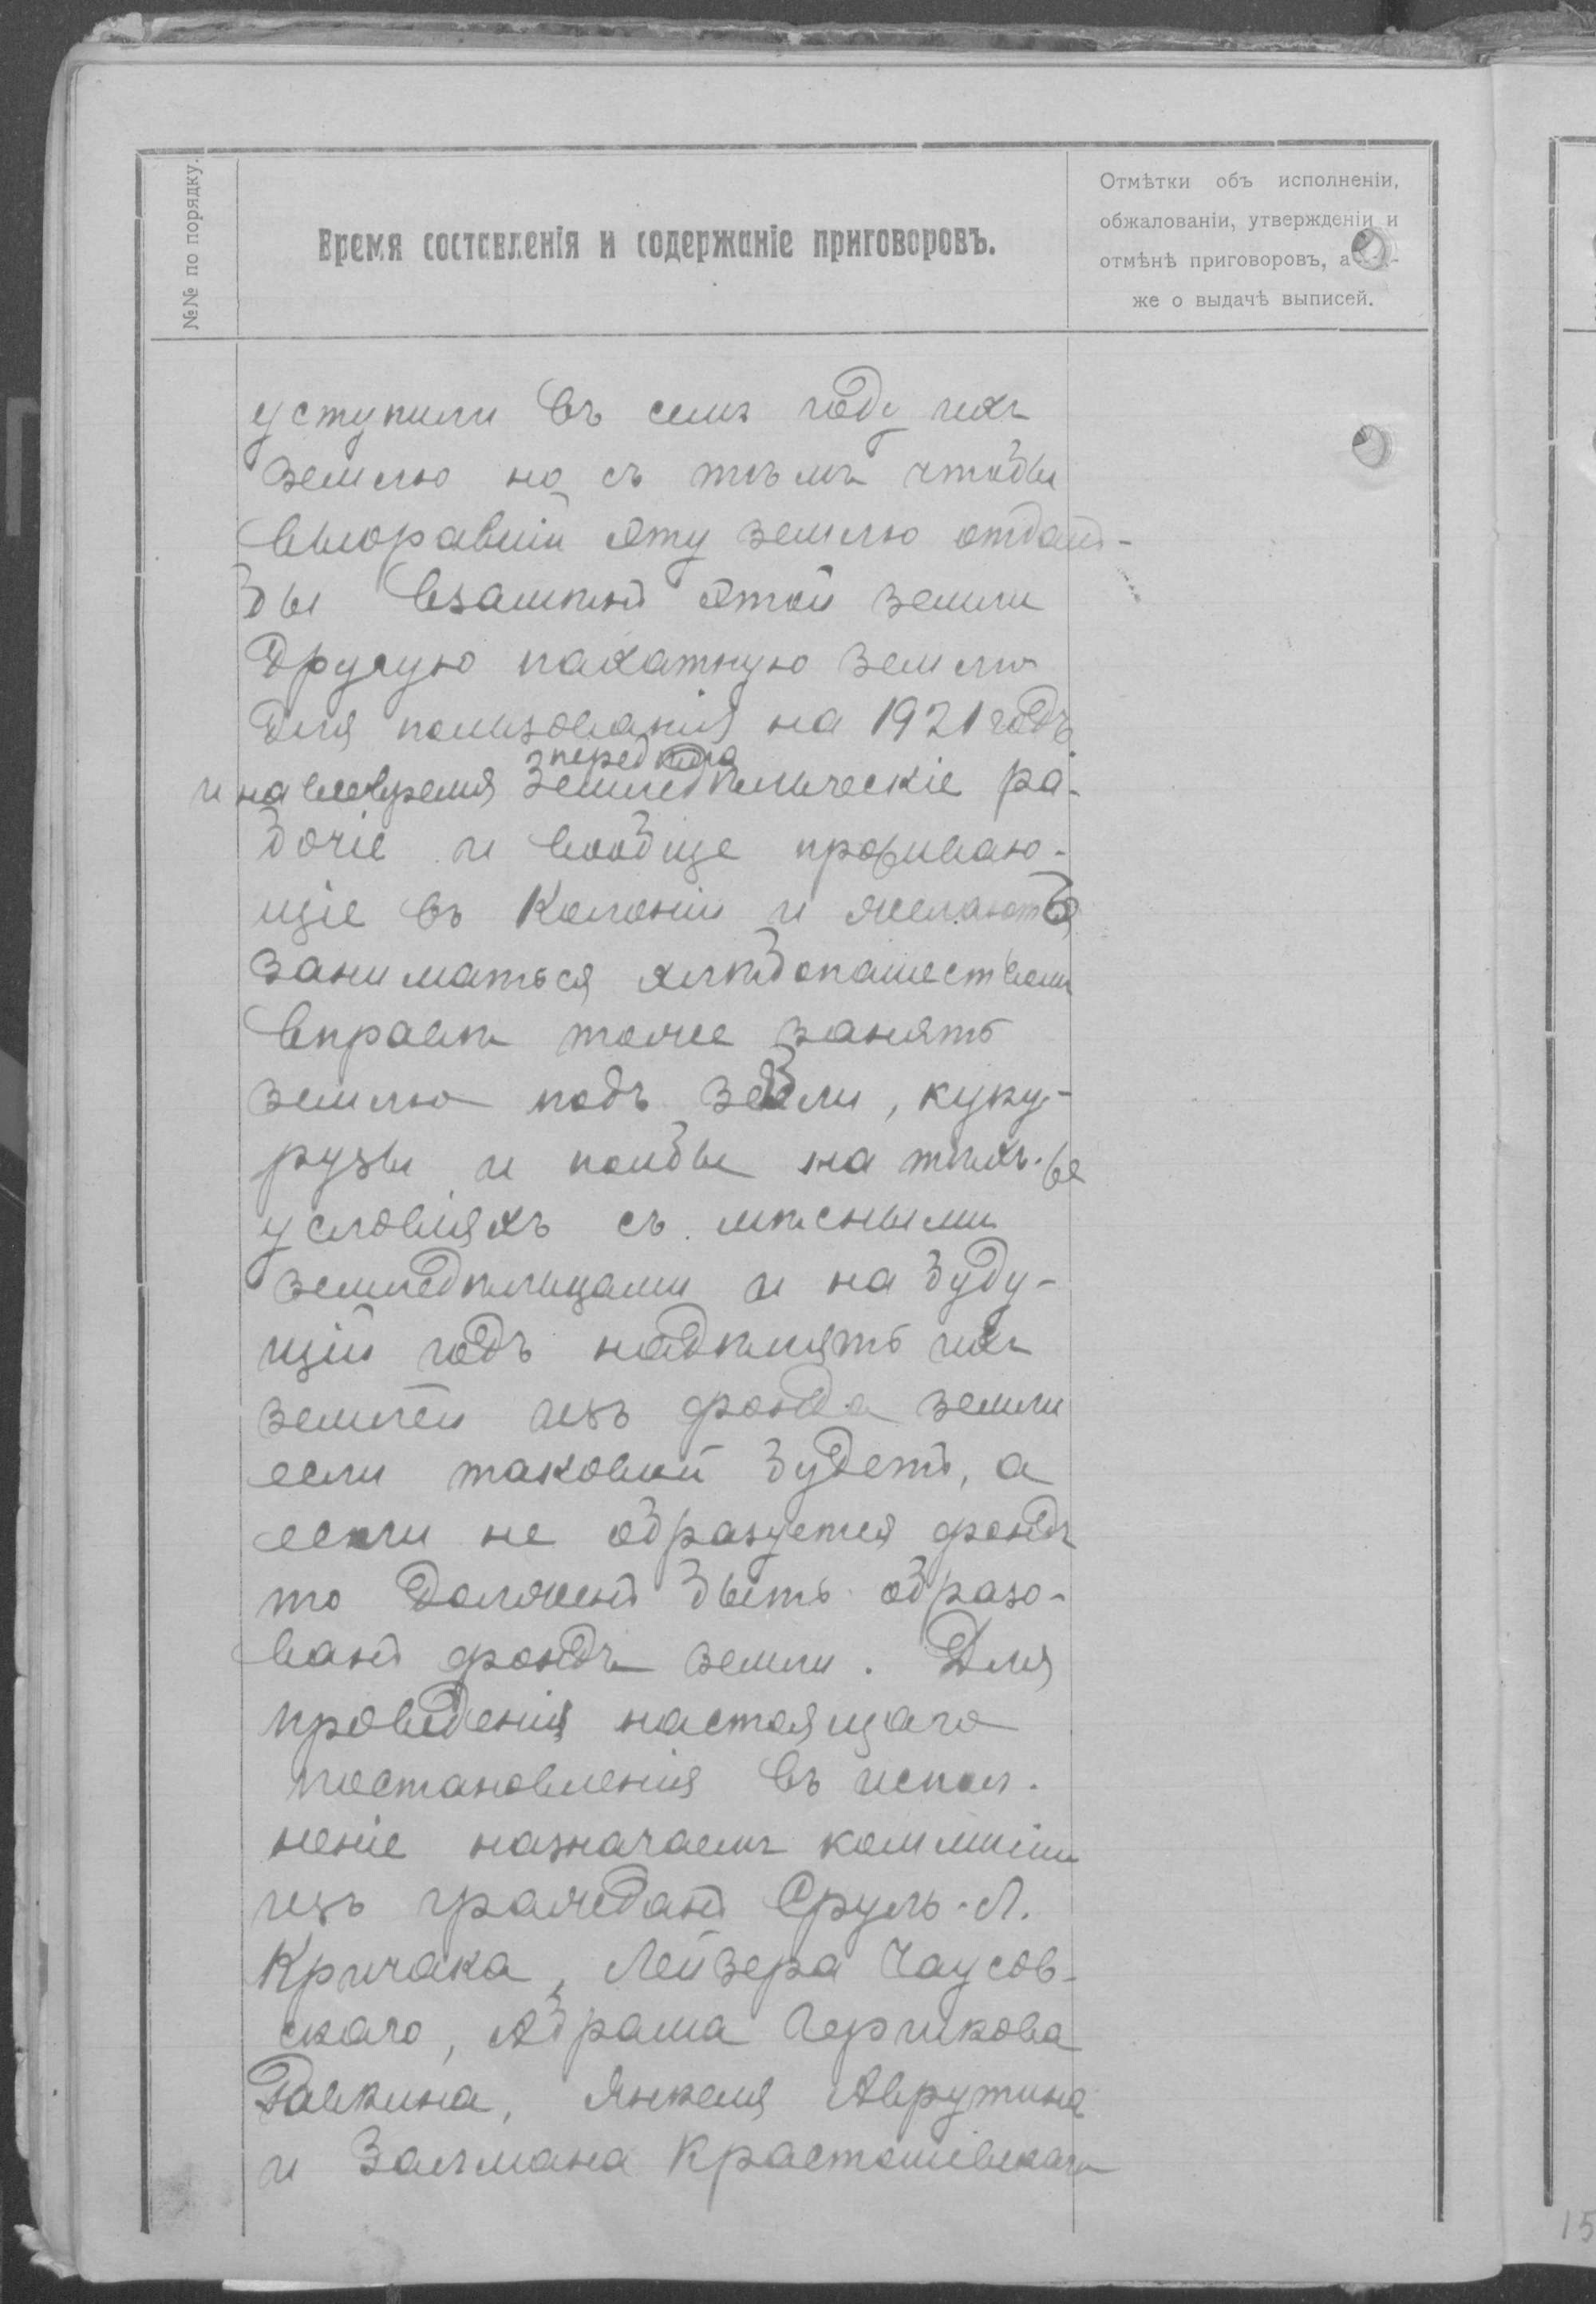 №№ по порядку.
Время составленія и содержаніе приговоровъ.
Отмѣтки объ исполненіи,
обжалованіи, утвержденіи и
отмѣнѣ приговоровъ, а
же о выдачѣ выписей.
уступили въ семъ году ихъ
землю но съ тѣмъ чтобы
эту землю отдали-
бы взамѣнъ этой земли
другую пахатную землю
для пользованія на 1921 годъ.
и земледѣльческіе ра-
бочіе и вообще прожываю-
щіе въ Колоніи и желаютъ
заниматься хлѣбопашествомъ
вправѣ тоже занять
землю подъ зябли, куку-
рузы и полбы на тѣхъ-же
условіяхъ съ
земледѣльцами и на буду-
щій годъ надѣлять ихъ
землей изъ фонда земли
если таковый будетъ, а
если не образуется фондъ
то долженъ быть образо-
ванъ фондъ земли. Для
проведенія настоящаго
постановленія въ испол-
неніе назначаемъ коммисіи
изъ гражданъ Сруль-Л.
Кричака, Лейзера Чаусов-
скаго, Абрама Черикова
Янкеля Аврутина
и Залмана
15